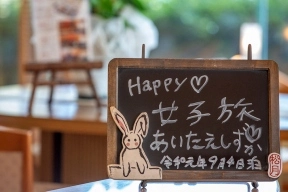 Happy♡
女子旅
あいたえしずか
令和元年9月4日泊